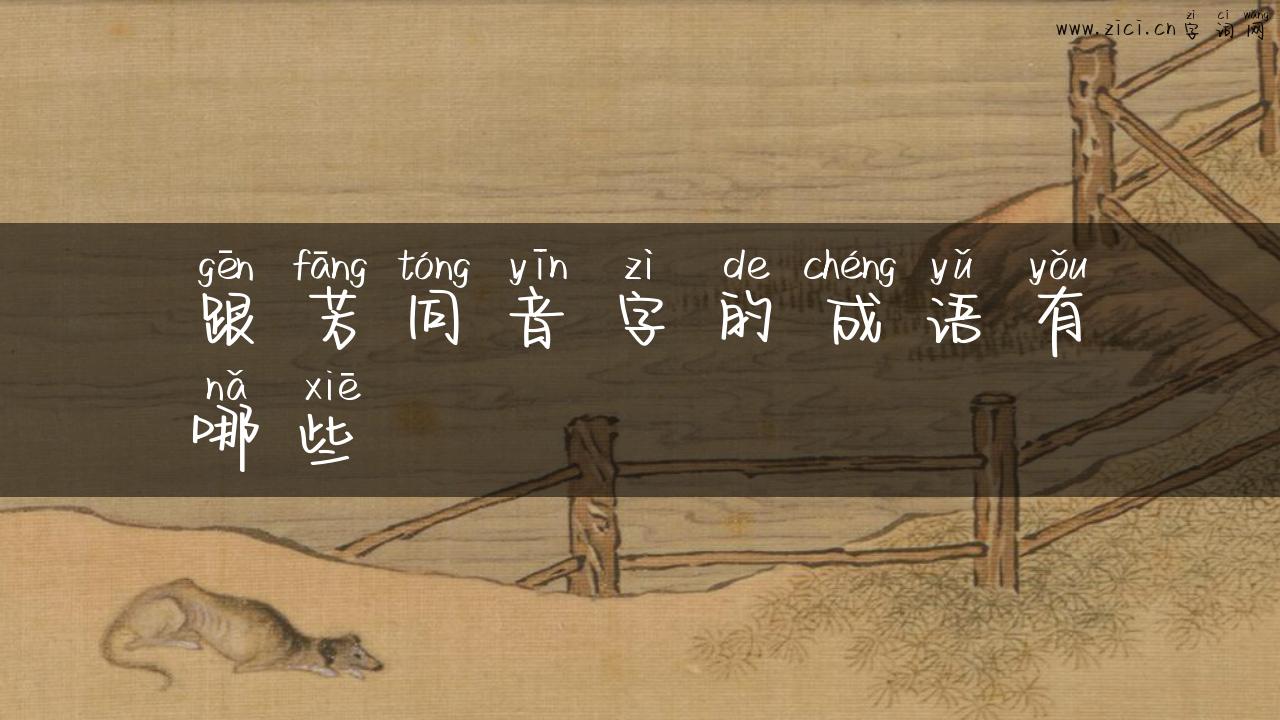 zì cí wǎng
www.zici.cn 字词网
gēn fāng tóng yīn zì de chéng yǔ yǒu
跟芳同音字的成语有
nǎ xiē
哪些